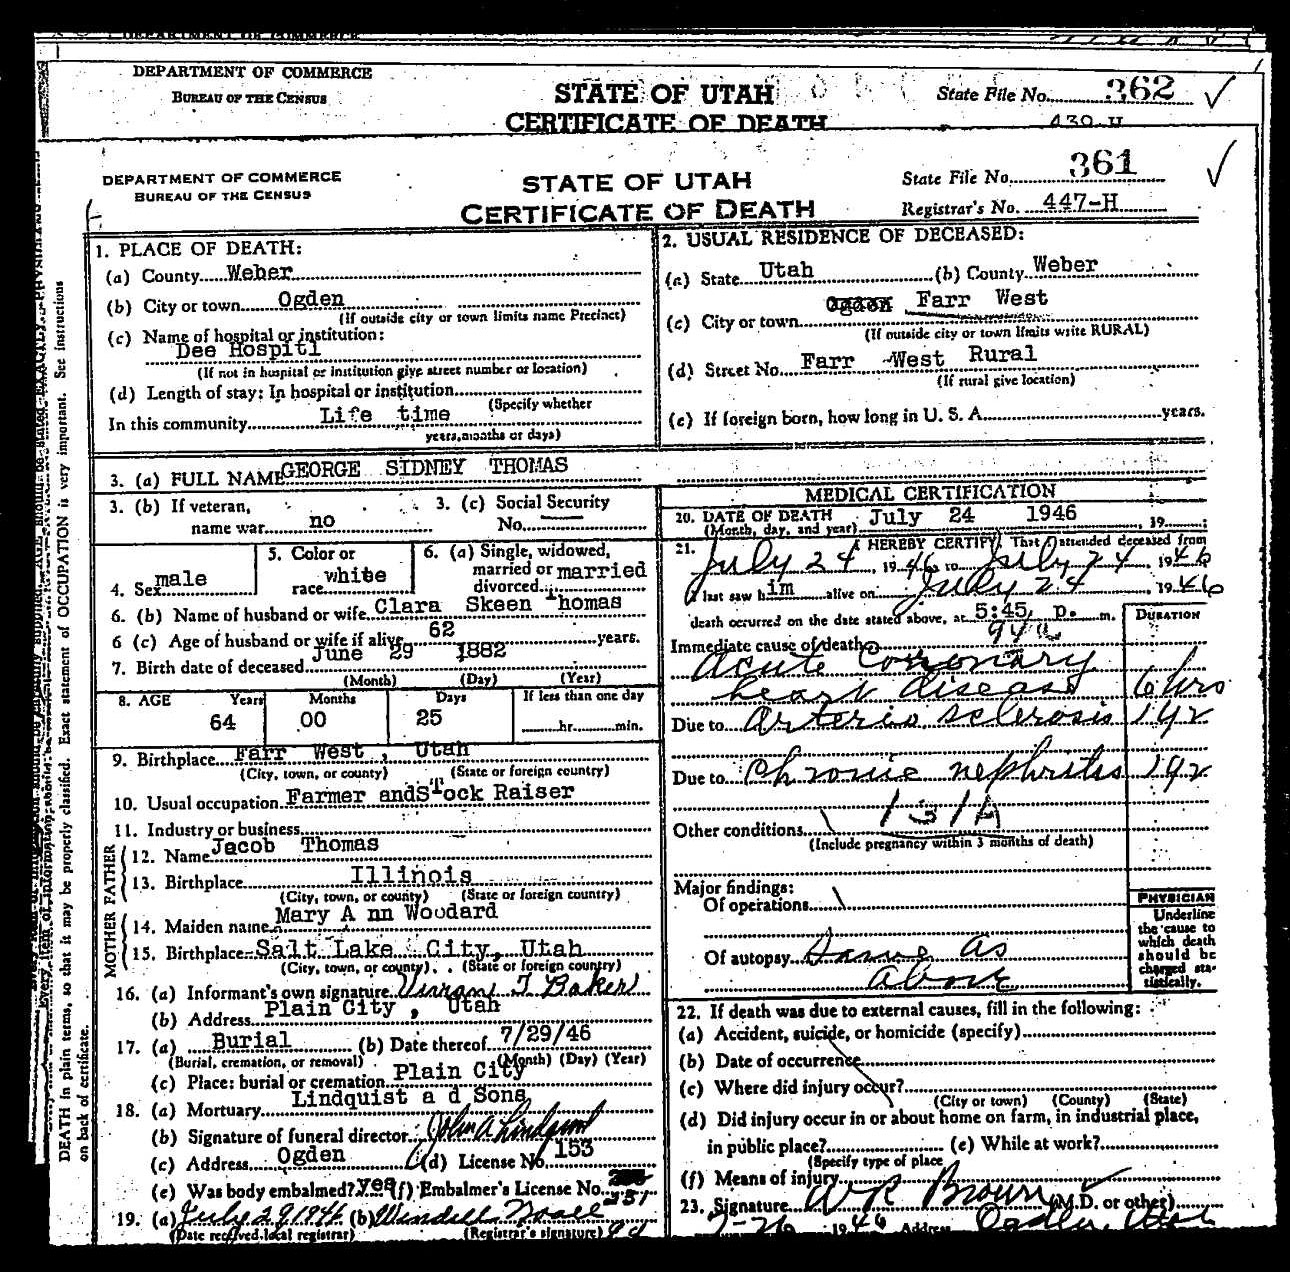 DEPARTMENT OF COMMERCE
BUREAU OF THE CENSUS
STATE OF UTAH
CERTIFICATE OF DEATH
State File No. 362
DEPARTMENT OF COMMERCE
BUREAU OF THE CENSUS
STATE OF UTAH
CERTIFICATE OF DEATH
State File No. 361
Registrar's No. 447-H
1. PLACE OF DEATH:
(a) County Weber
(b) City or town Ogden
(If outside city or town limits name Precinct)
(c) Name of hospital or institution:
Dee Hospitl
(If not in hospital or institution give street number or location)
(d) Length of stay: In hospital or institution
(Specify whether
In this community Life time
years, months or days)
2. USUAL RESIDENCE OF DECEASED:
(a) State Utah (b) County Weber
Ogden Farr West
(c) City or town
(If outside city or town limits write RURAL)
(d) Street No. Farr West Rural
(If rural give location)
(e) If foreign born, how long in U. S. A. years.
3. (a) FULL NAME GEORGE SIDNEY THOMAS
3. (b) If veteran,
name war no
3. (c) Social Security
No.
4. Sex male
5. Color or
race white
6. (a) Single, widowed,
married or married
divorced
6. (b) Name of husband or wife Clara Skeen Thomas
6 (c) Age of husband or wife if alive 62 years.
7. Birth date of deceased June 29 1882
(Month) (Day) (Year)
8. AGE Years Months Days If less than one day
64 00 25 hr. min.
9. Birthplace Farr West, Utah
(City, town, or county) (State or foreign country)
10. Usual occupation Farmer andStock Raiser
11. Industry or business
FATHER
12. Name Jacob Thomas
13. Birthplace Illinois
(City, town, or county) (State or foreign country)
MOTHER
14. Maiden name Mary A nn Woodard
15. Birthplace Salt Lake City, Utah
(City, town, or county) (State or foreign country)
16. (a) Informant's own signature T Baker
(b) Address Plain City, Utah
17. (a) Burial (b) Date thereof 7/29/46
(Burial, cremation, or removal) (Month) (Day) (Year)
(c) Place: burial or cremation Plain City
18. (a) Mortuary Lindquist a d Sons
(b) Signature of funeral director John A Lindquist
(c) Address Ogden (d) License No. 153
(e) Was body embalmed? yes (f) Embalmer's License No. 331
19. (a) July 29 1946 (b)
(Date received local registrar) (Registrar's signature)
MEDICAL CERTIFICATION
20. DATE OF DEATH July 24 1946, 19 ;
(Month, day, and year)
21. I HEREBY CERTIFY, That I attended deceased from
July 24, 1946 to July 24, 1946
I last saw him alive on July 24, 1946
death occurred on the date stated above, at 5:45 p. m.
DURATION
Immediate cause of death 94a
Acute Coronary
heart disease 6 hrs
Due to Arterio sclerosis 1 yr
Due to Chronic nephritis 1 yr
131A
Other conditions
(Include pregnancy within 3 months of death)
Major findings:
Of operations
Of autopsy Same as
above
PHYSICIAN
Underline
the cause to
which death
should be
charged sta-
tistically.
22. If death was due to external causes, fill in the following:
(a) Accident, suicide, or homicide (specify)
(b) Date of occurrence
(c) Where did injury occur?
(City or town) (County) (State)
(d) Did injury occur in or about home on farm, in industrial place,
in public place? (e) While at work?
(Specify type of place
(f) Means of injury
23. Signature W R Brown (M.D. or other)
7-26 1946 Address Ogden, Utah
DEATH in plain terms, so that it may be properly classified. Exact statement of OCCUPATION is very important. See instructions
on back of certificate.